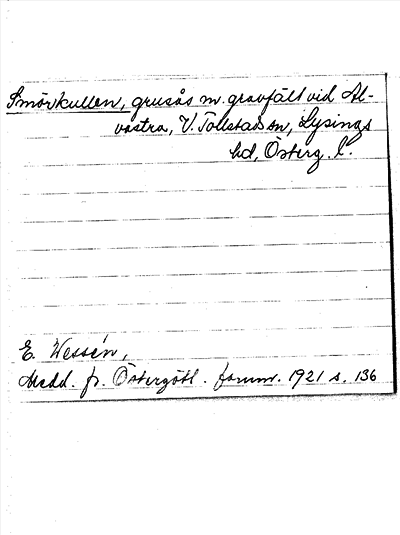 Smörkullen, grusås m. gravfält vid Al-
vastra, V. Tollstad sn, Lysings
hd, Österg. l.
E. Wessén,
Medd. fr. Östergötl. fornm. 1921 s. 136